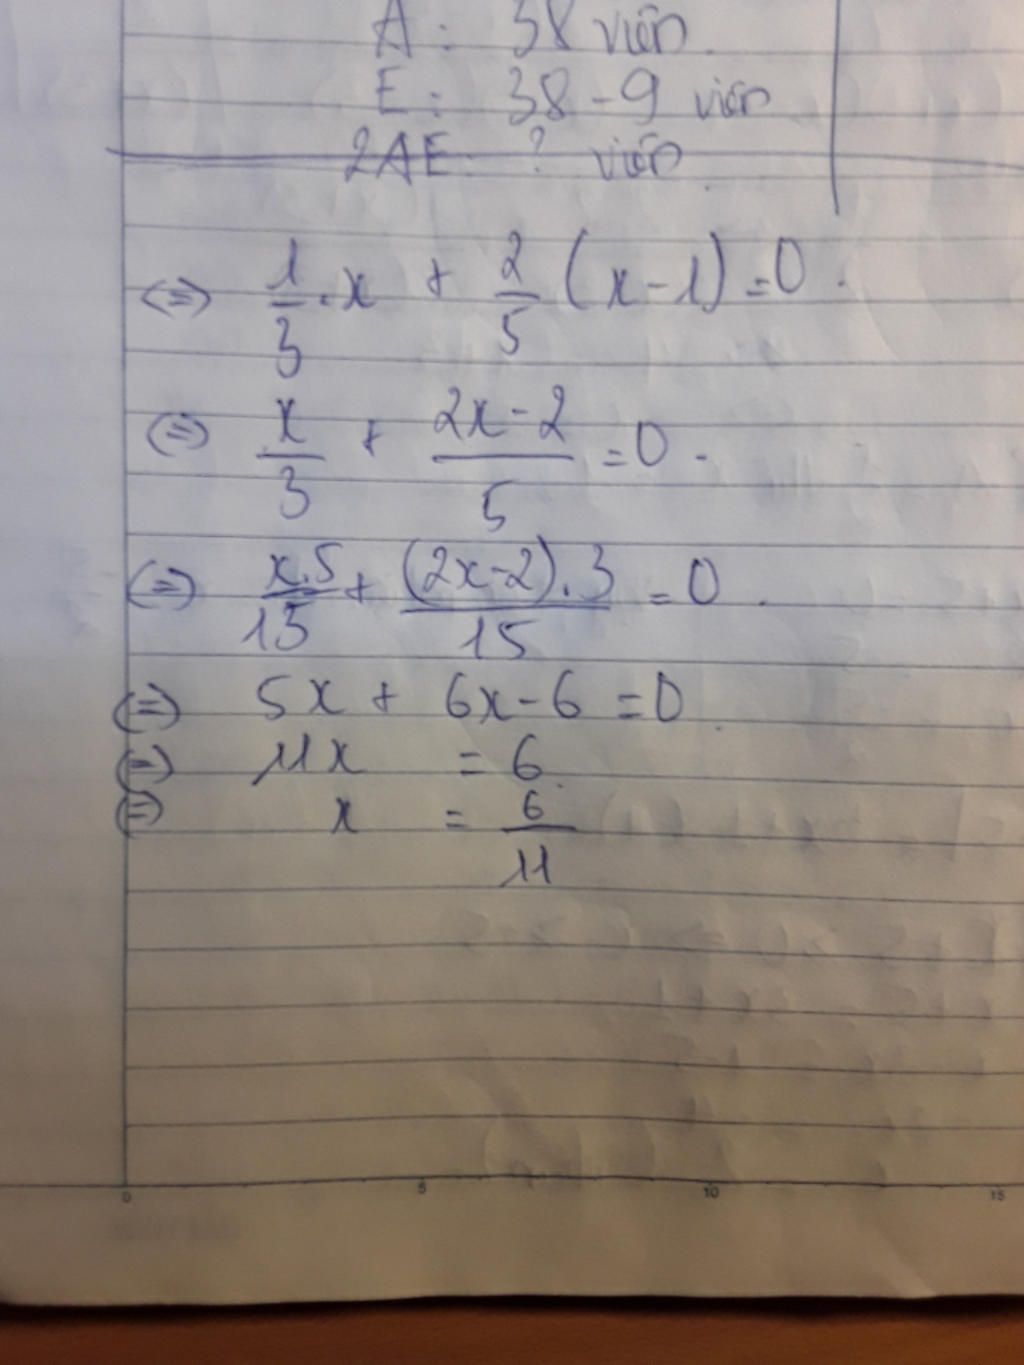 A: 38 viên.
E: 38 - 9 viên
2AE: ? viên.
⇔ 1/3 . x + 2/5 (x - 1) = 0.
⇔ x/3 + (2x - 2)/5 = 0.
⇔ x.5/15 + (2x - 2).3/15 = 0.
⇔ 5x + 6x - 6 = 0.
⇔ 11x = 6.
⇔ x = 6/11
0 5 10 15